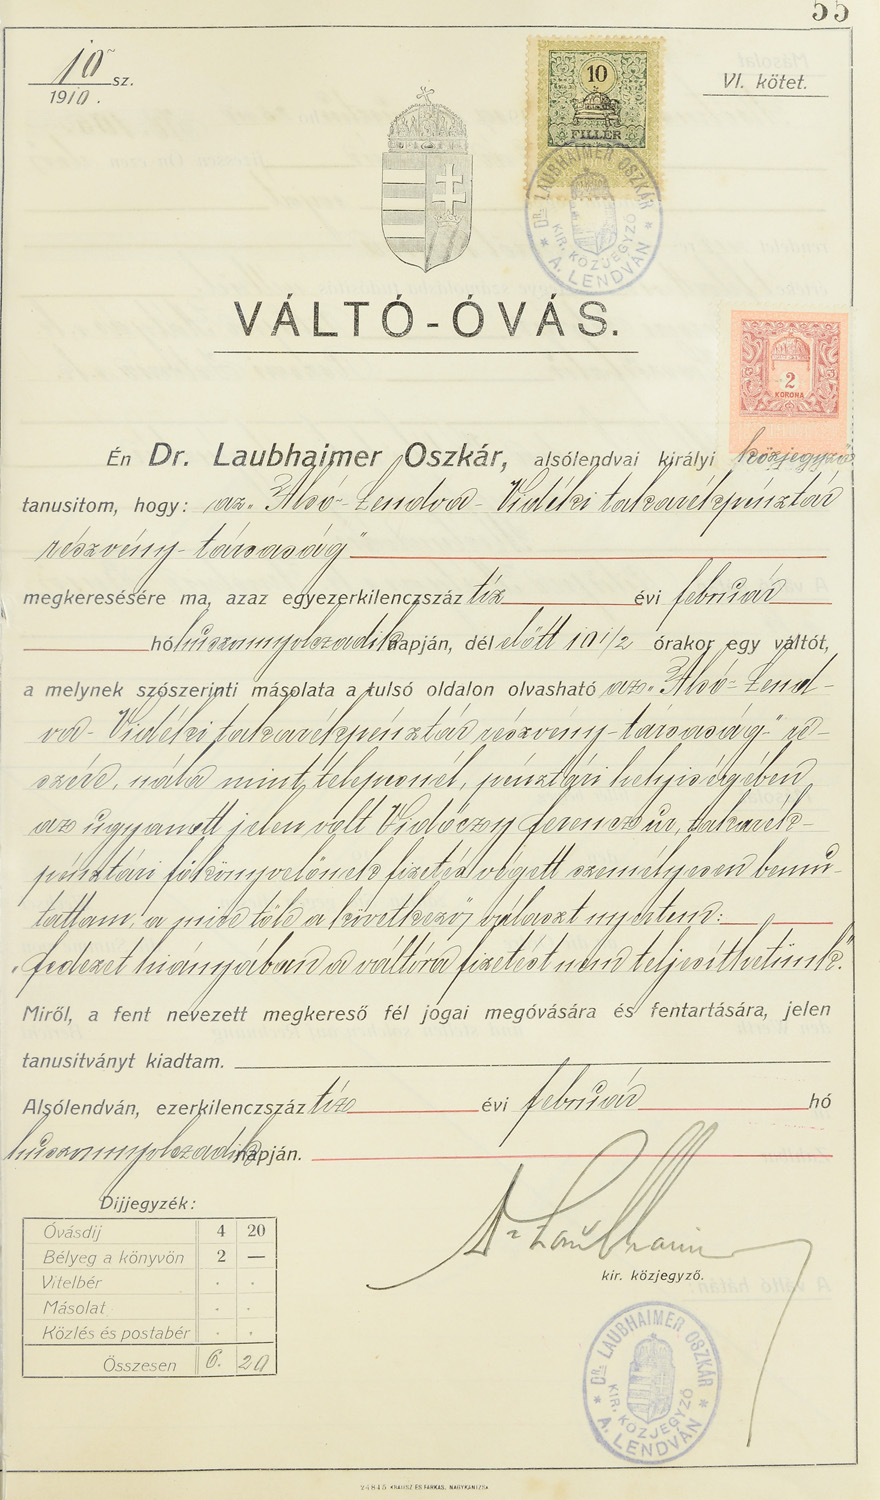 55
10 sz.
1910.
VI. kötet.
10
FILLÉR
DR. LAUBHAIMER OSZKÁR
KIR. KÖZJEGYZŐ
* A. LENDVÁN *
VÁLTÓ-ÓVÁS.
2
KORONA
Én Dr. Laubhaimer Oszkár, alsólendvai királyi közjegyző
tanusitom, hogy: az „Alsó-Lendva-Vidéki takarékpénztár
részvény-társaság"
megkeresésére ma, azaz egyezerkilenczszáz tíz évi február
hó huszonnyolczadik napján, dél előtt 10 1/2 órakor egy váltót,
a melynek szószerinti másolata a tulsó oldalon olvasható az „Alsó-Lend-
va-Vidéki takarékpénztár részvény-társaság" ré-
szére, nála mint telepesnél, pénztári helyiségében
az ugyanott jelen volt Vidóczy Ferencz úr, takarék-
pénztári főkönyvelőnek fizetés végett személyesen bemu-
tattam, a mire tőle a következő választ nyertem:
„fedezet hiányában a váltóra fizetést nem teljesíthetünk."
Miről, a fent nevezett megkereső fél jogai megóvására és fentartására, jelen
tanusitványt kiadtam.
Alsólendván, ezerkilenczszáz tíz évi február hó
huszonnyolczadik napján.
Dr Laubhaimer
kir. közjegyző.
Dijjegyzék:
Óvásdij 4 20
Bélyeg a könyvön 2 —
Vitelbér . .
Másolat . .
Közlés és postabér . .
Összesen 6. 20
DR. LAUBHAIMER OSZKÁR
KIR. KÖZJEGYZŐ
* A. LENDVÁN *
24845 KRAUSZ ÉS FARKAS, NAGYKANIZSA